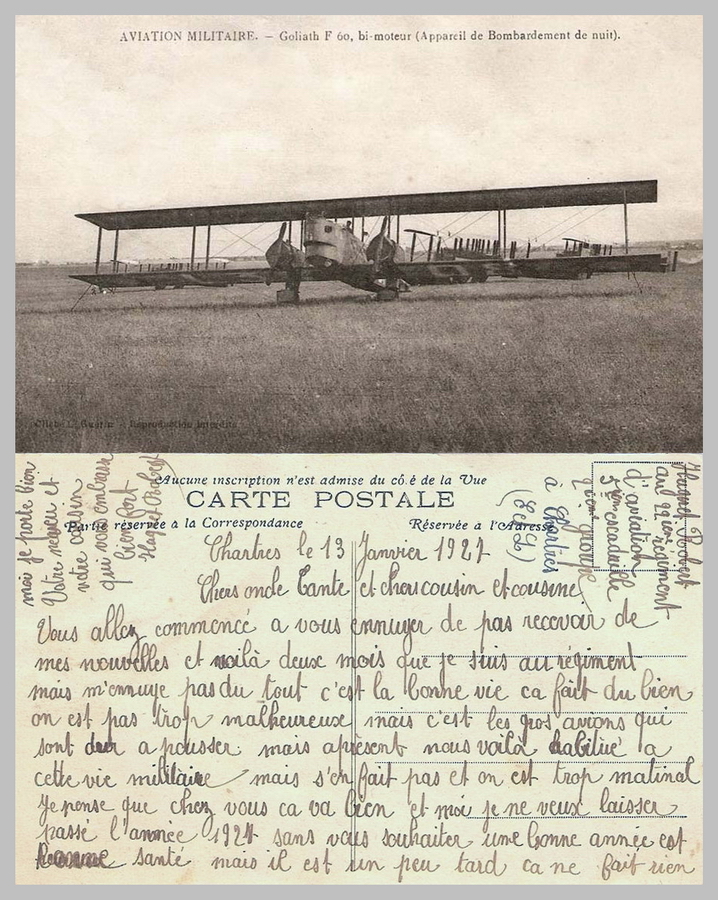 AVIATION MILITAIRE. — Goliath F 60, bi-moteur (Appareil de Bombardement de nuit).
Cliché L. Guérin - Reproduction interdite
Aucune inscription n'est admise du côté de la Vue
CARTE POSTALE
Partie réservée à la Correspondance
Réservée à l'Adresse
Chartres le 13 Janvier 1927
Chers oncle Tante et chers cousin et cousine
Vous allez commencé a vous ennuyer de pas recevoir de
mes nouvelles et voilà deux mois que je suis au régiment
mais m'ennuye pas du tout c'est la bonne vie ca fait du bien
on est pas trop malheureux mais c'est les gros avions qui
sont dur a pousser mais apresent nous voilà habitué a
cette vie militaire mais s'en fait pas et on est trop matinal
Je pense que chez vous ca va bien et moi je ne veux laisser
passé l'année 1927 sans vous souhaiter une bonne année est
bonne santé mais il est un peu tard ca ne fait rien
moi je porte bien
Votre neveu et
votre cousin
qui vous embrasse
bien fort
Robert
Robert
au 22ième régiment
d'aviation
5ième escadrille
2ième groupe
à Chartres
(E et L)